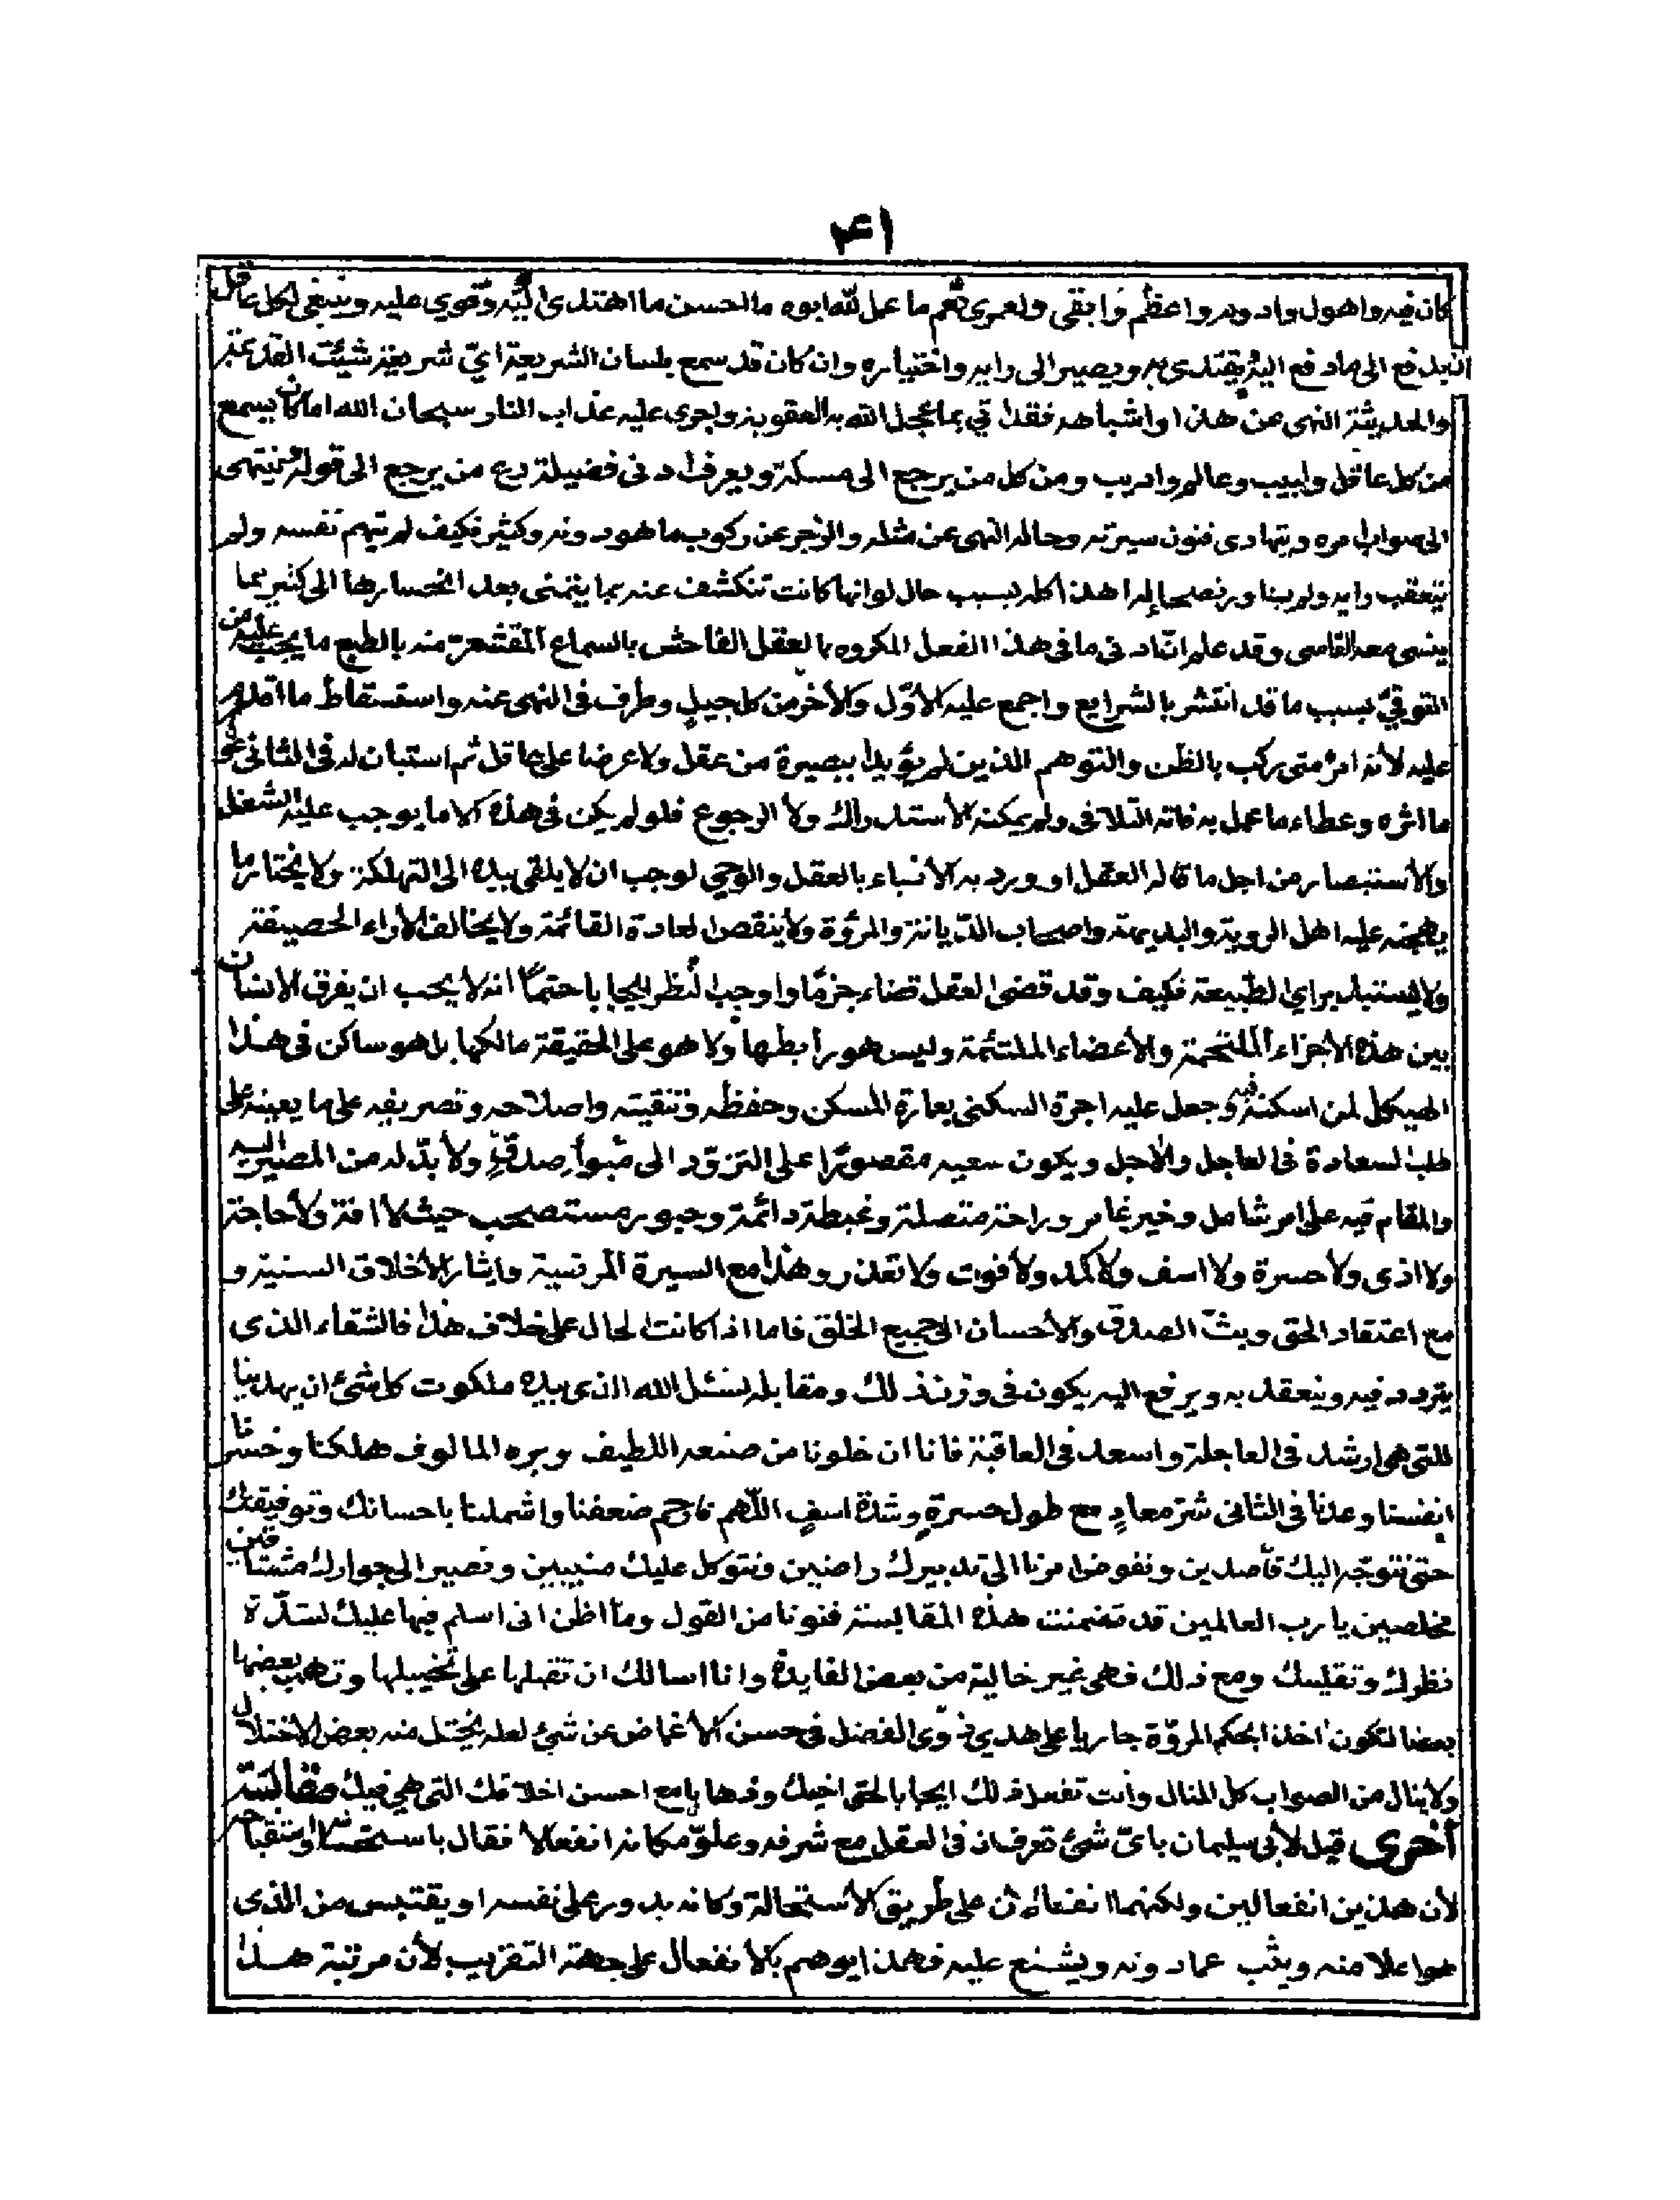 ٤١
كان فيه واهول وادوم واعظم وابقى ولعمري نعم ما عمل لله ابوه ما الحسن ما اهتدى اليه وقوي عليه وينبغي لكل عاقل
ان يدفع الى ما دفع اليه يقتدى به ويصير الى رايه واختياره وان كان قد سمع بلسان الشريعة اي شريعة شيئت القديمة
والحديثة النهى عن هذا واشباهه فقد اتي بما عجل الله به العقوبة واجرى عليه عذاب النار سبحان الله اما كان يسمع
من كل عاقل ولبيب وعالم واديب ومن كل من يرجع الى مسكة ويعرف ادنى فضيلة من يرجع الى قوله وينتهى
الى صواب امره ويتهادى فنون سيرته وحاله النهى عن مثله والزجر عن ركوب ما هو دونه وكثير فكيف لم يتهم نفسه ولم
يتعقب رايه ولم هذا كله بسبب حال لو انها كانت تنكشف عنه بما يتمنى بعد انحسارها الى كثير مما
ينسى معه القاسى وقد علم ان ادنى ما فى هذا الفعل المكروه بالعقل الفاحش بالسماع المقشعر منه بالطبع ما يجب عليه من
التوقي بسبب ما قد انتشر بالشرايع واجمع عليه الأول والأخر من كل جيل وطرف فى النهى عنه واستسقاط ما اقدم
عليه لأنه امر متى ركب بالظن والتوهم الذين لم يؤيدا ببصيرة من عقل ولا عرضا على ثم استبان له فى الثانى
ما اثره وعطاء ما عمل به فاته التلافى ولم يمكنه الأستدراك ولا الرجوع فلو لم يكن فى هذه الا ما يوجب عليه الشغل
والأستبصار من اجل ما قاله العقل او ورد به الأنبياء بالعقل والوحي لوجب ان لا يلقى بيده الى التهلكة ولا يختار ما
يهجنه عليه اهل الروية والبديهة واصحاب الديانة والمروة ولا ينقض العادة القائمة ولا يخالف الأراء الحصيفة
ولا يستبد براي الطبيعة فكيف وقد قضى العقل قضاء جزما واوجب النظر ايجابا حتما انه لا يجب ان يفرق الانسان
بين هذه الأجزاء الملتحمة والأعضاء الملتئمة وليس هو رابطها ولا هو على الحقيقة مالكها بل هو ساكن فى هذا
الهيكل لمن اسكنه فيه وجعل عليه اجرة السكنى بعمارة المسكن وحفظه وتنقيته واصلاحه وتصريفه على ما يعينه على
طلب السعادة فى العاجل والأجل ويكون سعيه مقصورا على التزود الى مبوأ صدق ولا بد له من المصير اليه
والمقام فيه على امر شامل وخير غامر وراحة متصلة وغبطة دائمة وحبور مستصحب حيث لا افة ولا حاجة
ولا اذى ولا حسرة ولا اسف ولا كمد ولا فوات ولا تعذر وهذا مع السيرة المرضية وايثار الأخلاق السنية و
مع اعتقاد الحق وبث الصدق والأحسان الى جميع الخلق فاما اذا كانت الحال على خلاف هذا فالشقاء الذى
يتردد فيه وينعقد به ويرفع اليه يكون فى وزن ذلك ومقابله نسئل الله الذى بيده ملكوت كل شئ ان يهدينا
للتى هى ارشد فى العاجلة واسعد فى العاقبة فانا ان خلونا من صنعه اللطيف وبره المالوف هلكنا وخسرنا
انفسنا وعدنا فى الثانى شر معاد مع طول حسرة وشدة اسف اللهم فارحم ضعفنا واشملنا باحسانك وتوفيقك
حتى نتوجه اليك قاصدين ونفوض امرنا الى تدبيرك راضين ونتوكل عليك منيبين ونصير الى جوارك مشتاقين
مخلصين يا رب العالمين قد تضمنت هذه المقابسة فنونا من القول وما اظن انى اسلم فيها عليك لشدة
نظرك وتفليسك ومع ذلك فهى غير خالية من بعض الفايدة وانا اسالك ان تقبلها على تخييلها وتهب بعضها
بعضا لتكون اخذا بحكم المروة جاريا على هدي ذوى الفضل فى حسن الأغماض عن شئ لعله يختل منه بعض الاختلال
ولا ينال من الصواب كل المنال وانت تفعل ذلك ايجابا لحق اخيك وذهابا مع احسن اخلاقك التى هى فيك مقابسة
اخرى قيل لأبى سليمان باى شئ تعرف ان فى العقل مع شرفه وعلو مكانه انفعالا فقال باستحسانه واستقباحه
لأن هذين انفعالين ولكنهما انفعالان على طريق الأستحالة وكانه بدور على نفسه او يقتبس من الذى
هو اعلا منه ويثب عما دونه ويشنع عليه فهذا يوهم بالأنفعال على جهة التقريب لأن مرتبة هذا